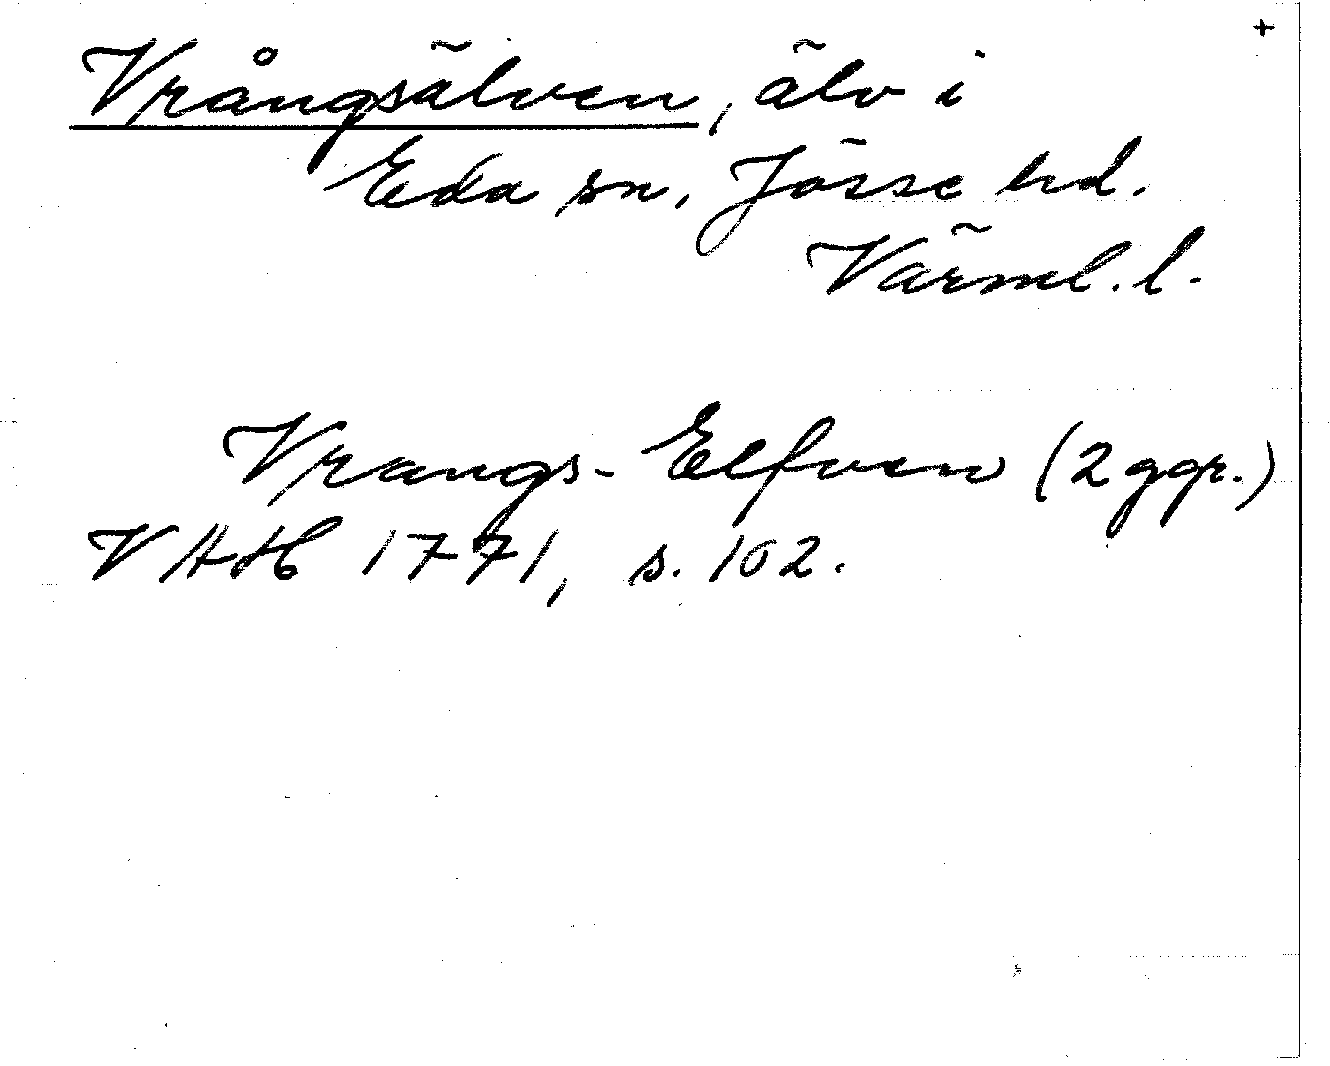 +
Vrångsälven, älv i
Eda sn, Jösse hd.
Värml. l.
Vrangs-Elfven (2 ggr.)
VAH 1771, s. 102.